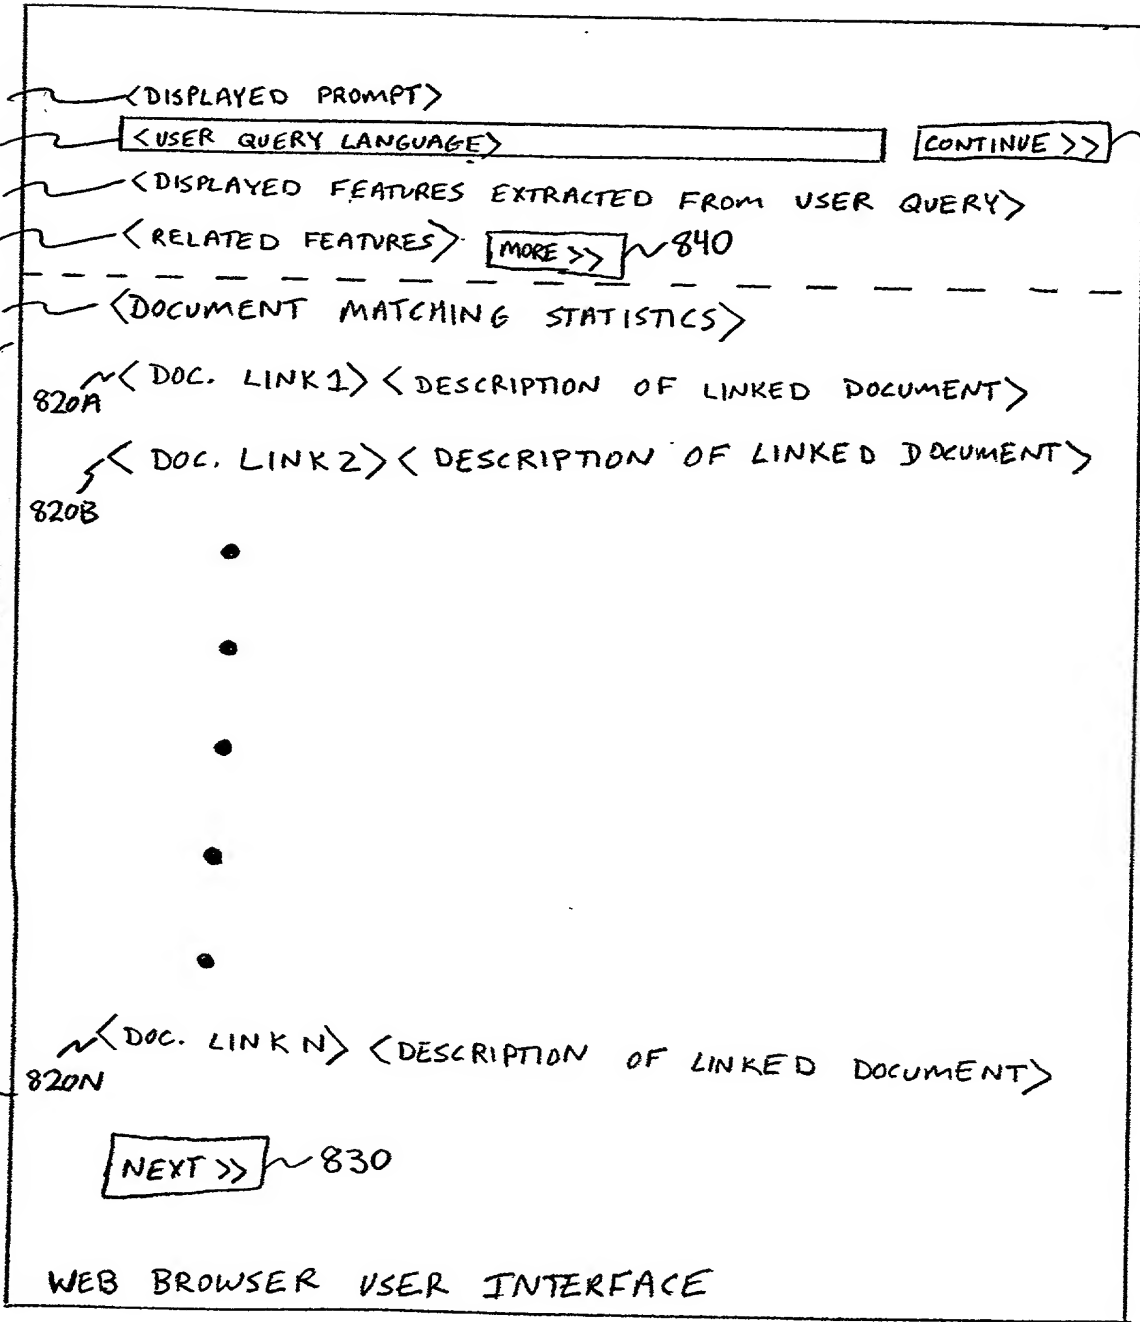 <DISPLAYED PROMPT>
<USER QUERY LANGUAGE> CONTINUE >>
<DISPLAYED FEATURES EXTRACTED FROM USER QUERY>
<RELATED FEATURES> MORE >> 840
<DOCUMENT MATCHING STATISTICS>
820A <DOC. LINK 1> <DESCRIPTION OF LINKED DOCUMENT>
820B <DOC. LINK 2> <DESCRIPTION OF LINKED DOCUMENT>
820N <DOC. LINK N> <DESCRIPTION OF LINKED DOCUMENT>
NEXT >> 830
WEB BROWSER USER INTERFACE